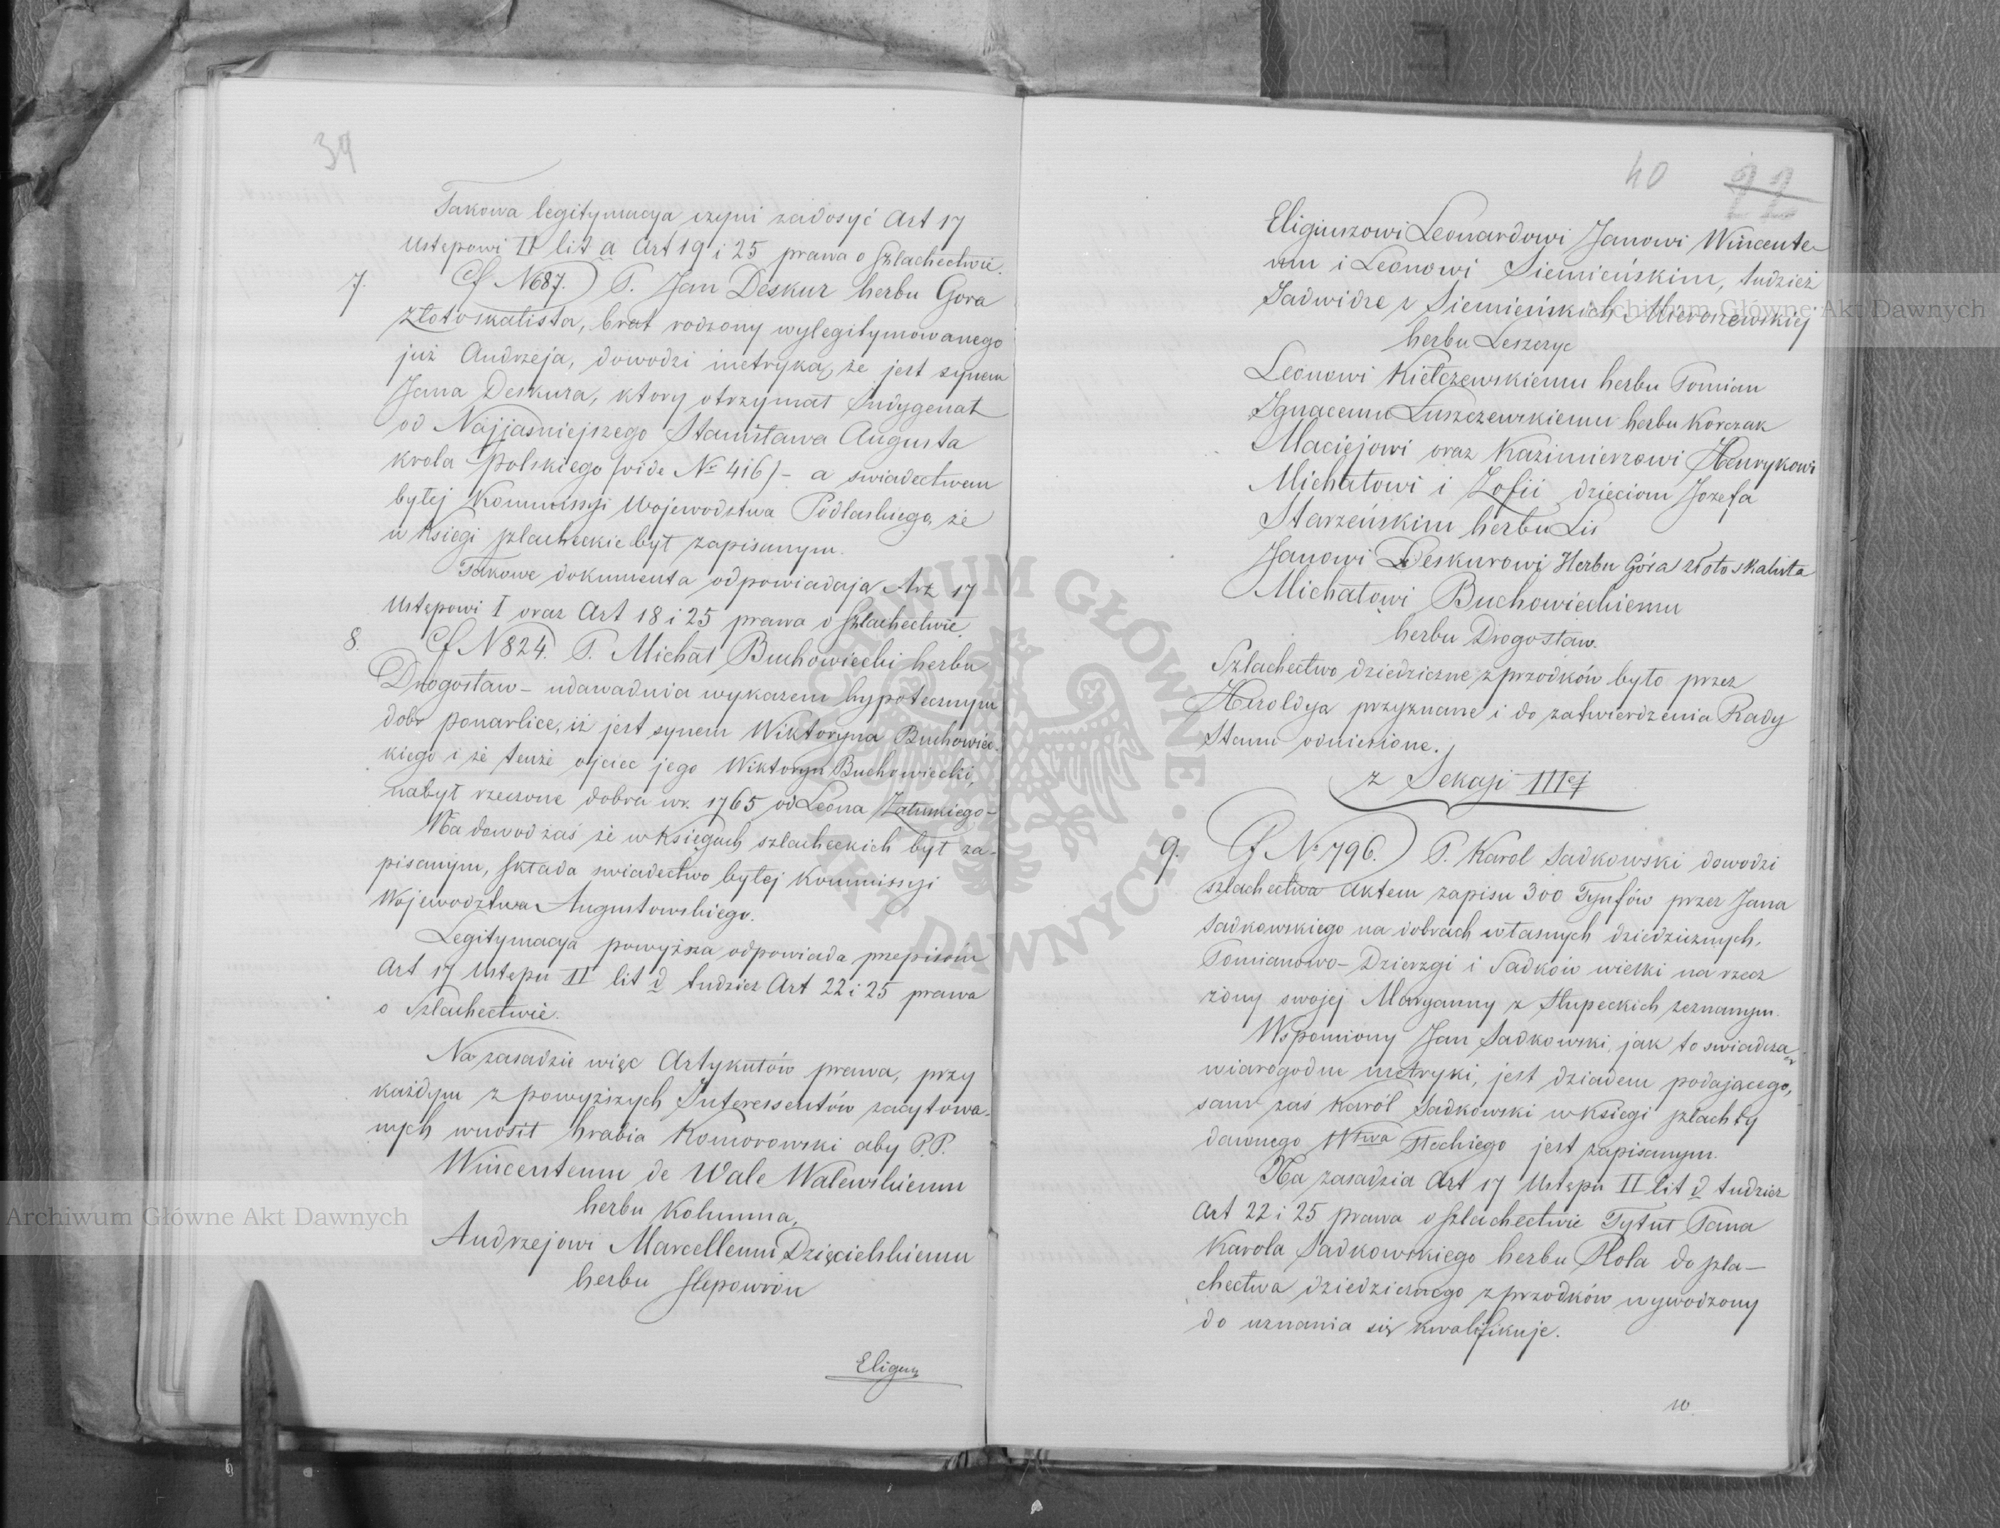 39
Takowa legitymacya czyni zadosyć Art 17
Ustępowi II lit a Art 19 i 25 prawa o szlachectwie.
7. Cf N 687.) P. Jan Deskur herbu Gora
złotoskalista, brat rodzony wylegitymowanego
już Andrzeja, dowodzi metryką, że jest synem
Jana Deskura, ktory otrzymał Indygenat
od Najjasniejszego Stanisława Augusta
krola polskiego (vide № 416) - a swiadectwem
byłej Kommissyi Wojewodztwa Podlaskiego, że
w księgi szlacheckie był zapisanym.
Takowe dokumenta odpowiadają Art 17
Ustępowi I oraz Art 18 i 25 prawa o szlachectwie.
8. Cf N 824. P. Michał Buchowiecki herbu
Drogosław - udawadnia wykazem hypotecznym
dobr Ponarlice, iż jest synem Wiktoryna Buchowiec-
kiego i że tenże ojciec jego Wiktoryn Buchowiecki,
nabył rzeczone dobra w r. 1765 od Leona Załuskiego -
Na dowod zaś że w księgach szlacheckich był za-
pisanym, składa swiadectwo byłej Kommissyi
Wojewodztwa Augustowskiego.
Legitymacya powyższa odpowiada przepisom
Art 17 Ustępu II lit d tudzież Art 22 i 25 prawa
o Szlachectwie.
Na zasadzie więc Artykułów prawa, przy
każdym z powyższych Interessentów zacytowa-
nych wnosił hrabia Komorowski aby P.P.
Wincentemu de Wale Walewskiemu
herbu Kolumna,
Andrzejowi Marcellemu Dzięcielskiemu
herbu Slepowron
Eligiusz
40 22
Eligiuszowi Leonardowi Janowi Wincente-
mu i Leonowi Siemieńskim, tudzież
Jadwidze z Siemieńskich Mieroszewskiej
herbu Leszczyc
Leonowi Kiełczewskiemu herbu Pomian
Ignacemu Łuszczewskiemu herbu Korczak
Maciejowi oraz Kazimierzowi Henrykowi
Michałowi i Zofii dzieciom Jozefa
Starzeńskim herbu Lis
Janowi Deskurowi Herbu Góra złoto skalista
Michałowi Buchowieckiemu
herbu Drogosław.
Szlachectwo dziedziczne z przodków było przez
Heroldyą przyznane i do zatwierdzenia Rady
Stanu odniesione.
z Sekcyi IIIej
9. Cf № 796.) P. Karol Sadkowski dowodzi
szlachectwa Aktem zapisu 300 Tynfów przez Jana
Sadkowskiego na dobrach własnych dziedzicznych,
Pomianowo-Dzierzgi i Sadków wielki na rzecz
żony swojej Maryanny z Słupeckich zeznanym.
Wspomiony Jan Sadkowski jak to swiadczą
wiarogodne metryki, jest dziadem podającego,
sam zaś Karól Sadkowski w księgi szlachty
dawnego Wtwa Płockiego jest zapisanym.
Na zasadzie Art 17 Ustępu II lit d tudzież
Art 22 i 25 prawa o szlachectwie Tytuł Pana
Karola Sadkowskiego herbu Rola do szla-
chectwa dziedzicznego z przodków wywodzony
do uznania się kwalifikuje.
10.
Archiwum Główne Akt Dawnych
Archiwum Główne Akt Dawnych
ARCHIWUM GŁÓWNE AKT DAWNYCH